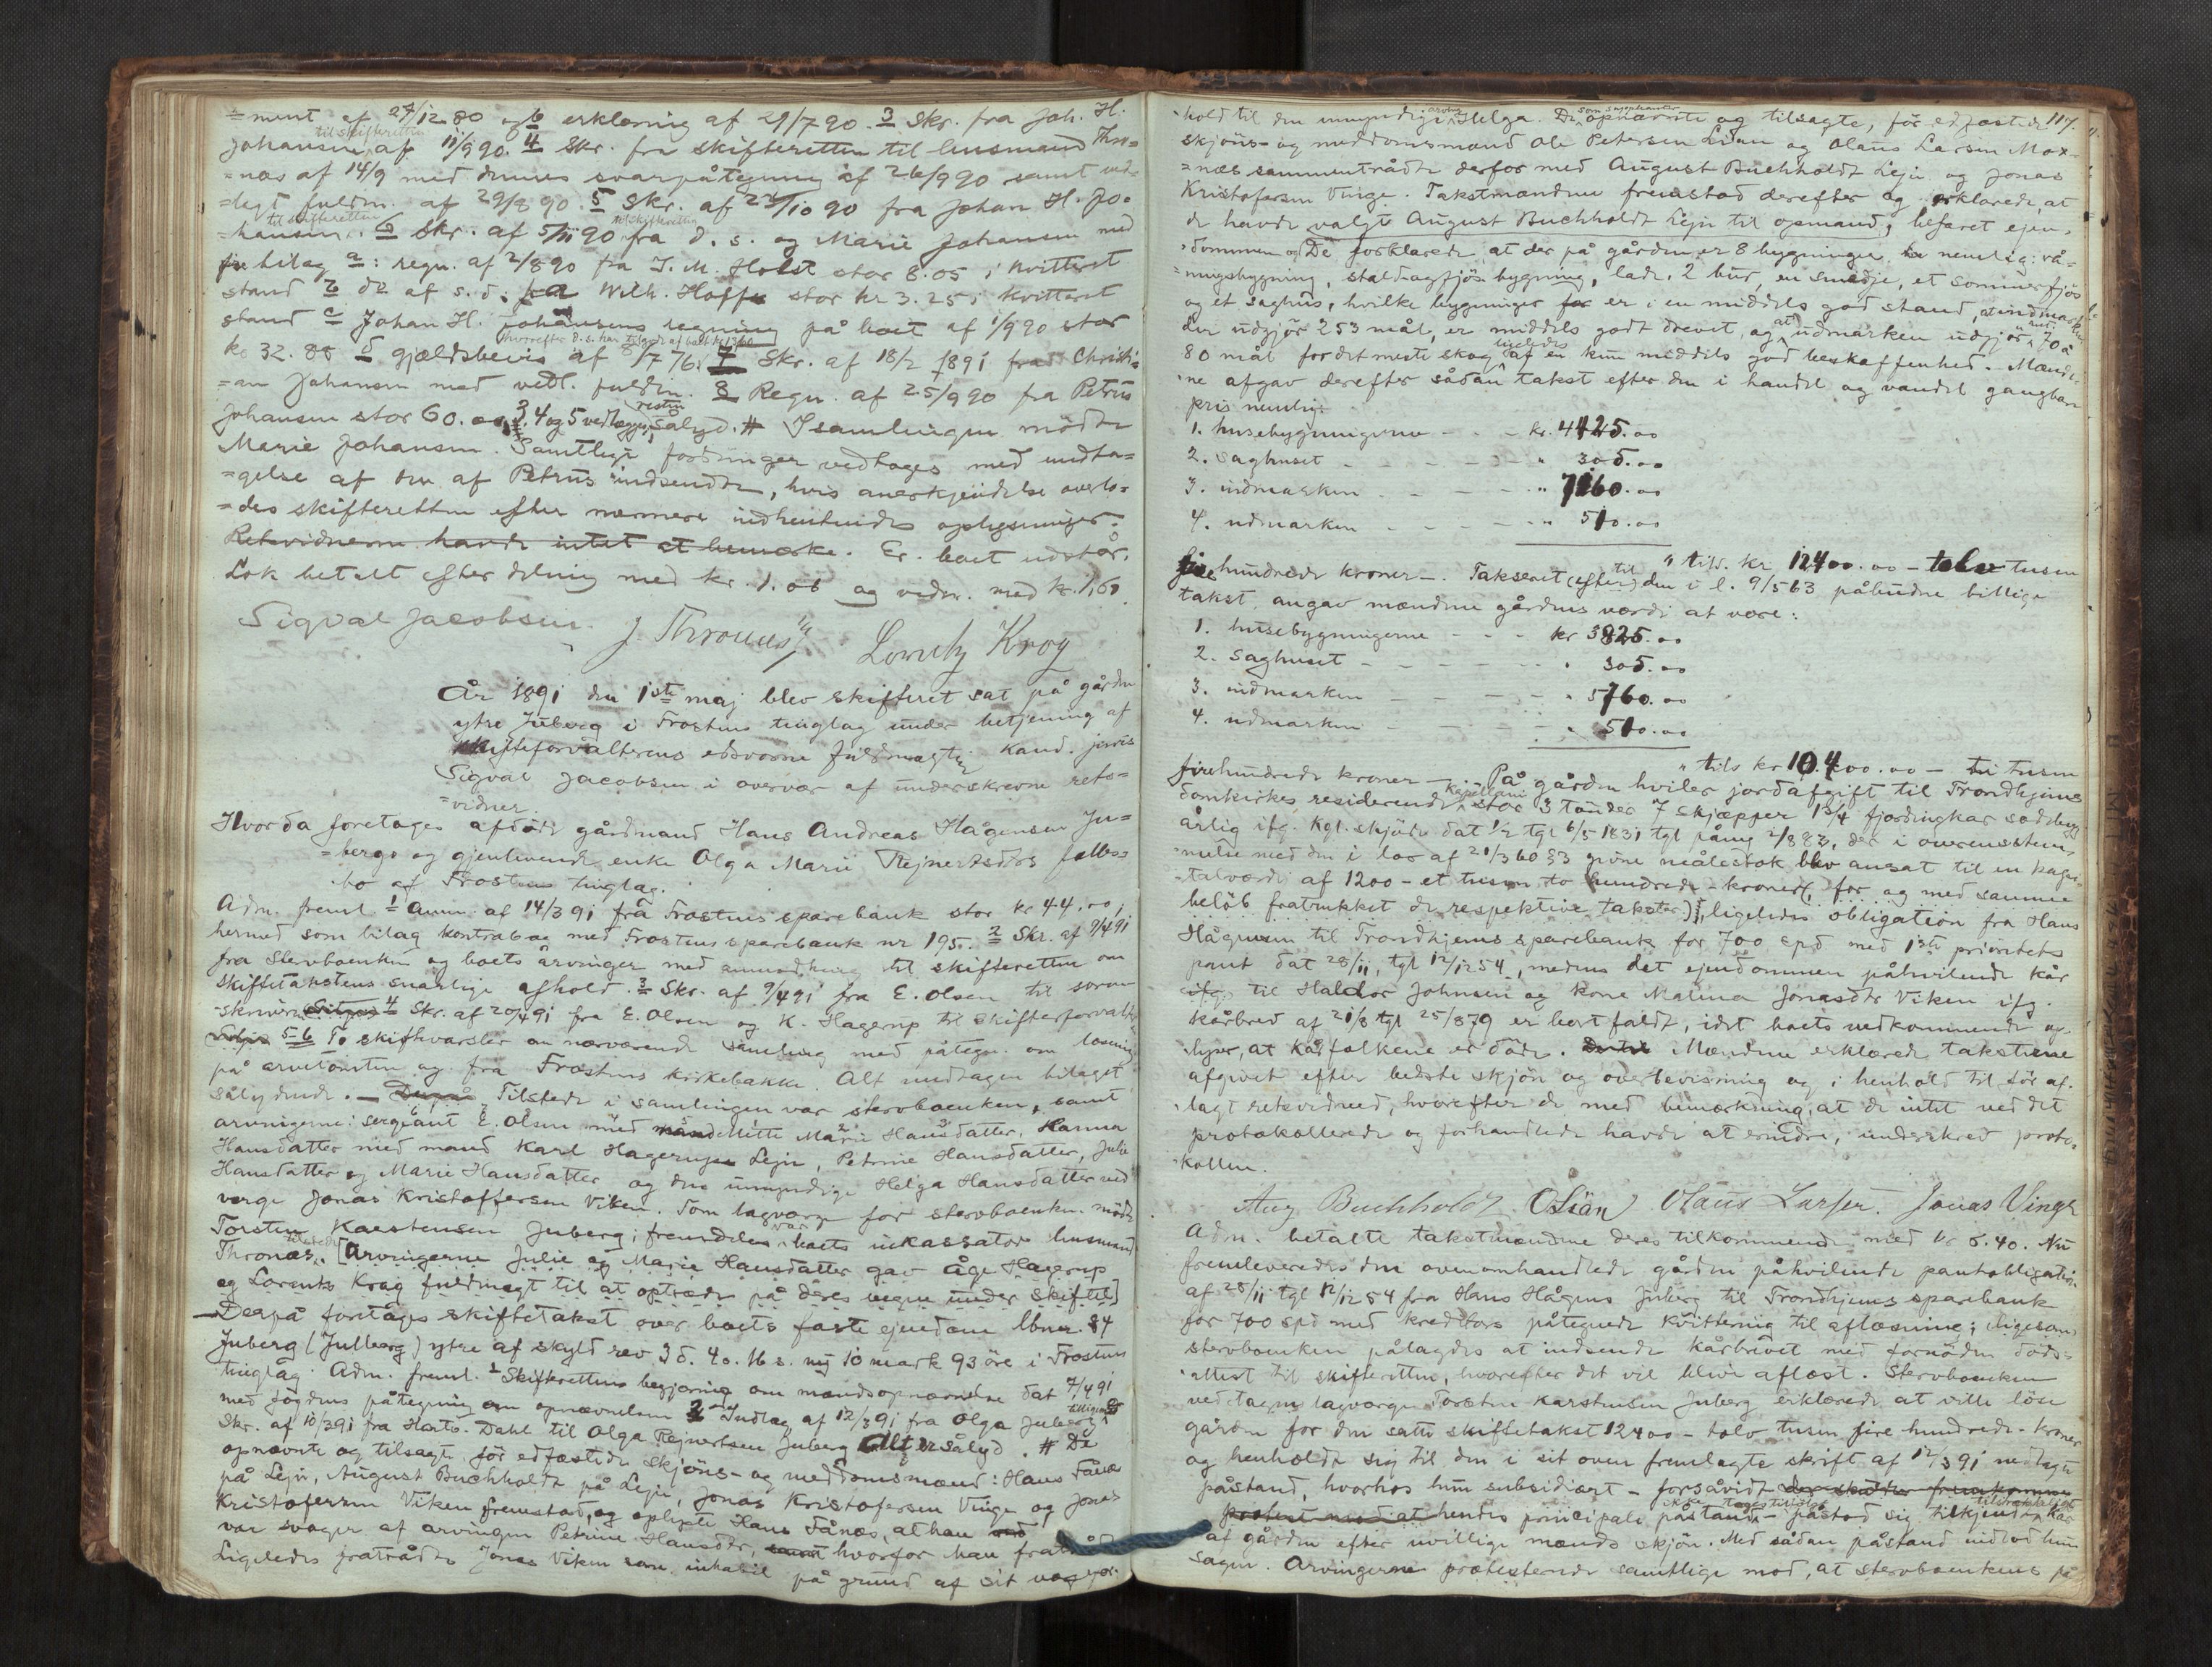 =ment af 27/12 80 og b erklæring af 29/7 90. 3 Skr. fra Joh. H.
til skifteretten
Johansen af 11/9 90. 4 Skr. fra skifteretten til lensmand Thro=
=næs af 14/9 med dennes svarpåtegning af 26/9 90 samt ved=
=lagt fuldm. af 29/8 90. 5 Skr. af 23/10 90 fra Johan H. Jo=
til skifteretten til skifteretten
=hansen. 6 Skr. af 5/11 90 fra d. s. og Marie Johansen med
bilag a: regn. af 2/8 90 fra J. M. Holst stor 8.05 i kvitteret
stand b do af s. d. fra Wilh. Hoffs stor kr 3.25 i kvitteret
stand c Johan H. Johansens regning på boet af 1/9 90 stor
kr 32.88 d gjældsbevis af 8/7 76. 7 Skr. af 18/2 1891 fra Christi=
=an Johansen med vedl. fuldm. 8 Regn. af 25/9 90 fra Petrus
Johansen stor 60.00. 3. 4 og 5 vedlægges, resten sålyd. # I samlingen mödte
Marie Johansen. Samtlige fordringer vedtages med undta=
=gelse af den af Petrus indsendte, hvis anerkjendelse overlo=
=des skifteretten efter nærmere indhentende oplysninger.
Retsvidnerne havde intet at bemærke. Er. boet udstår.
Lok betalt efter delning med kr. 1.06 og vidn. med kr. 1,60
Sigval Jacobsen. J. Thronæs Lorents Krog
År 1891 den 1ste maj blev skifteret sat på gården
ytre Julberg i Frostens tinglag under betjening af
skifteforvalterens edsvorne fuldmægtig kand. juris
Sigval Jacobsen i overvær af underskrevne rets=
=vidner.
Hvorda foretages afdöde gårdmand Hans Andreas Hågensen Ju=
=bergs og gjenlevende enke Olga Marie Rejnertsdtrs fælles=
bo af Frostens tinglag.
Adm. freml. 1 Anm. af 14/3 91 fra Frostens sparebank stor kr 44.00,
hermed som bilag kontrabog med Frostens sparebank nr 195. 2 Skr. af 9/4 91
fra stervboenken og boets arvinger med anmodning til skifteretten om
skiftetakstens snarlige afhold. 3 Skr. af 9/4 91 fra E. Olsen til soren=
=skriveren 4 Skr. af 20/4 91 fra E. Olsen og K. Hagerup til skifteforvalt=
5-6 To skiftevarsler om nærværende samling med påtegn. om læsning
på arvetomten og fra Frostens kirkebakke. Alt undtagen bilaget
sålydende. — Tilstede i samlingen var stervboenken, samt
arvingerne: sergeant E. Olsen med Mette Marie Hansdatter, Hanna
Hansdatter med mand Karl Hagerup Lejn, Petrine Hansdatter, Julie
Hansdatter og Marie Hansdatter og den umyndige Helga Hansdatter ved
verge Jonas Kristoffersen Viken. Som lagverge for stervboenken mödte
Torsten Karstensen Juberg; fremdeles var boets inkassator lensmand
Thronæs tilstede. [Arvingerne Julie og Marie Hansdatter gav Åge Hagerup
og Lorents Krog fuldmagt til at optræde på deres vegne under skiftet]
— Derpå foretoges skiftetakst over boets faste ejendom lbnr. 84
Juberg (Julberg) ytre af skyld rev 3 d. 4 o. 16 s. ny 10 mark 93 öre i Frostens
tinglag. Adm. freml. 1 Skifterettens begjæring om mandsopnævnelse dat 7/4 91
med fogdens påtegning om opnævnelsen 2 Indlæg af 12/3 91 fra Olga Juberg
Skr. af 10/3 91 fra Hartv. Dahl til Olga Rejnertsen Juberg Alt er sålyd. # De
opnævnte og tilsagte, för edfæstede skjöns- og meddomsmænd: Hans Fånæs
på Lejn, August Buchholdt på Lejn, Jonas Kristofersen Vinge og Jonas
Kristofersen Viken fremstod, og oplyste Hans Fånæs, at han
var svoger af arvingen Petrine Hansdtr, hvorfor Man fratrådte
Ligeledes fratrådte Jonas Viken som inhabil på grund af sit verge=
117.
hold til den umyndige arving Helga. De som suppleanter opnævnte og tilsagte, för edfæstede
skjöns- og meddomsmænd Ole Petersen Lian og Olaus Larsen Mox=
=næs sammentrådte derfor med August Buchholdt Lejn og Jonas
Kristofersen Vinge. Takstmændene fremstod derefter og erklærede, at
de havde valgt August Buchholdt Lejn til opmand, befaret ejen=
=dommen og De forklarede, at der på gården er 8 bygninger, nemlig: vå=
=ningsbygning, stald og fjösbygning, lade, 2 bur, en smedje, et sommerfjös
og et saghus, hvilke bygninger er i en middels god stand, at indmarken
der udgjör 253 mål, er middels godt drevet, og at udmarken udgjör 70 à
80 mål fordetmeste skog ligeledes af en kun middels god beskaffenhed. Mænde=
=ne afgav derefter sådan takst efter den i handel og vandel gangbare
pris nemlig:
1. husebygningerne - - - kr. 4425.00
2. saghuset - - - - - - " 305.00
3. indmarken - - - - - " 7160.00
4. udmarken - - - - - " 510.00
" tils. kr 12400.00 — tolv tusen
firehundrede kroner —. Takseret (efter) til den i l. 9/5 63 påbudne billige
takst, angav mændene gårdens værdi at være:
1. husebygningerne - - - kr 3825.00
2. saghuset - - - - - - " 305.00
3. indmarken - - - - - " 5760.00
4. udmarken - - - - - " 510.00
" tils kr 10400.00 — ti tusen
firehundrede kroner —. På gården hviler jordafgift til Trondhjems
domkirkes residerende kapellani stor 3 tönder 7 skjæpper 1 3/4 fjordingkar sædebyg
årlig ifg. kgl. skjöde dat 1/2 tgl 6/5 1831 tgl påny 2/8 83, der i overensstem=
=melse med den i lov af 20/3 60 §3 givne målestok blev ansat til en kapi=
=talværdi af 1200 - et tusen to hundrede - kroner (, for og med samme
belöb fratrukket de respektive takster); ligeledes obligation fra Hans
Hågensen til Trondhjems sparebank for 700 spd med 1ste prioritets
pant dat 28/11, tgl 12/12 54, medens det ejendommen påhvilende kår
til Haldor Johnsen og kone Malena Jonasdtr Viken ifg.
kårbrev af 20/8 tgl 25/8 79 er bortfaldt, idet boets vedkommende op=
=lyser, at kårfolkene er döde. Mændene erklærede taksterne
afgivet efter bedste skjön og overbevisning og i henhold til för af=
lagt retsvidned, hvorefter de med bemærkning, at de intet ved det
protokollerede og forhandlede havde at erindre, underskrev proto=
kollen.
Aug Buchholdt OLian Olaus Larsen. Jonas Vinge
Adm. betalte takstmændene deres tilkommende med kr 6.40. Nu
fremleveredes den ovenomhandlede gården påhvilende pantobligation
af 28/11 tgl 12/12 54 fra Hans Hågens Juberg til Trondhjems sparebank
for 700 spd med kreditors påtegnede kvittering til aflæsning; ligesom
stervboenken pålagdes at indsende kårbrevet med fornöden döds=
attest til skifteretten, hvorefter det vil blive aflæst. Stervboenken
ved tagen lagverge Torsten Karstensen Juberg erklærede at ville löse
gården for den satte skiftetakst 12400 - tolv tusen fire hundrede - kroner
og henholdt sig til den i sit oven fremlagte skrift af 12/3 91 nedlagte
påstand, hvorhos hun subsidiært - forsåvidt der skulde fremkomme
protest mod at hendes principale påstand ikke tages tilfölge - påstod sig tilkjendt tilstrækkeligt kår
af gården efter uvillige mænds skjön. Med sådan påstand indlod hun
sagen. Arvingerne protesterede samtlige mod, at stervboenkens på=